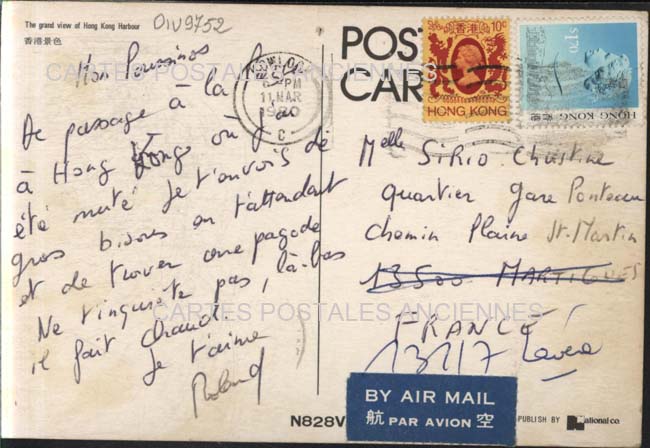 The grand view of Hong Kong Harbour
香港景色
OIV9752
Mon Poussinos
De passage à la
à Hong Kong où j'ai
été muté je t'envois de
gros bisous en t'attendant
et de trouver une pagode
Ne t'inquiète pas, là-bas
il fait chaud.
Je t'aime
Roland
POST
CARD
香港
10c
HONG KONG
HONG KONG
6 PM
11 MAR
C
Melle SIRIO Christine
quartier gare Ponteau
Chemin Plaine St-Martin
13500 MARTIGUES
FRANCE
13217 Lavera
BY AIR MAIL
航 PAR AVION 空
N828V
PUBLISH BY National co.
CARTES POSTALES ANCIENNES
CARTES POSTALES ANCIENNES